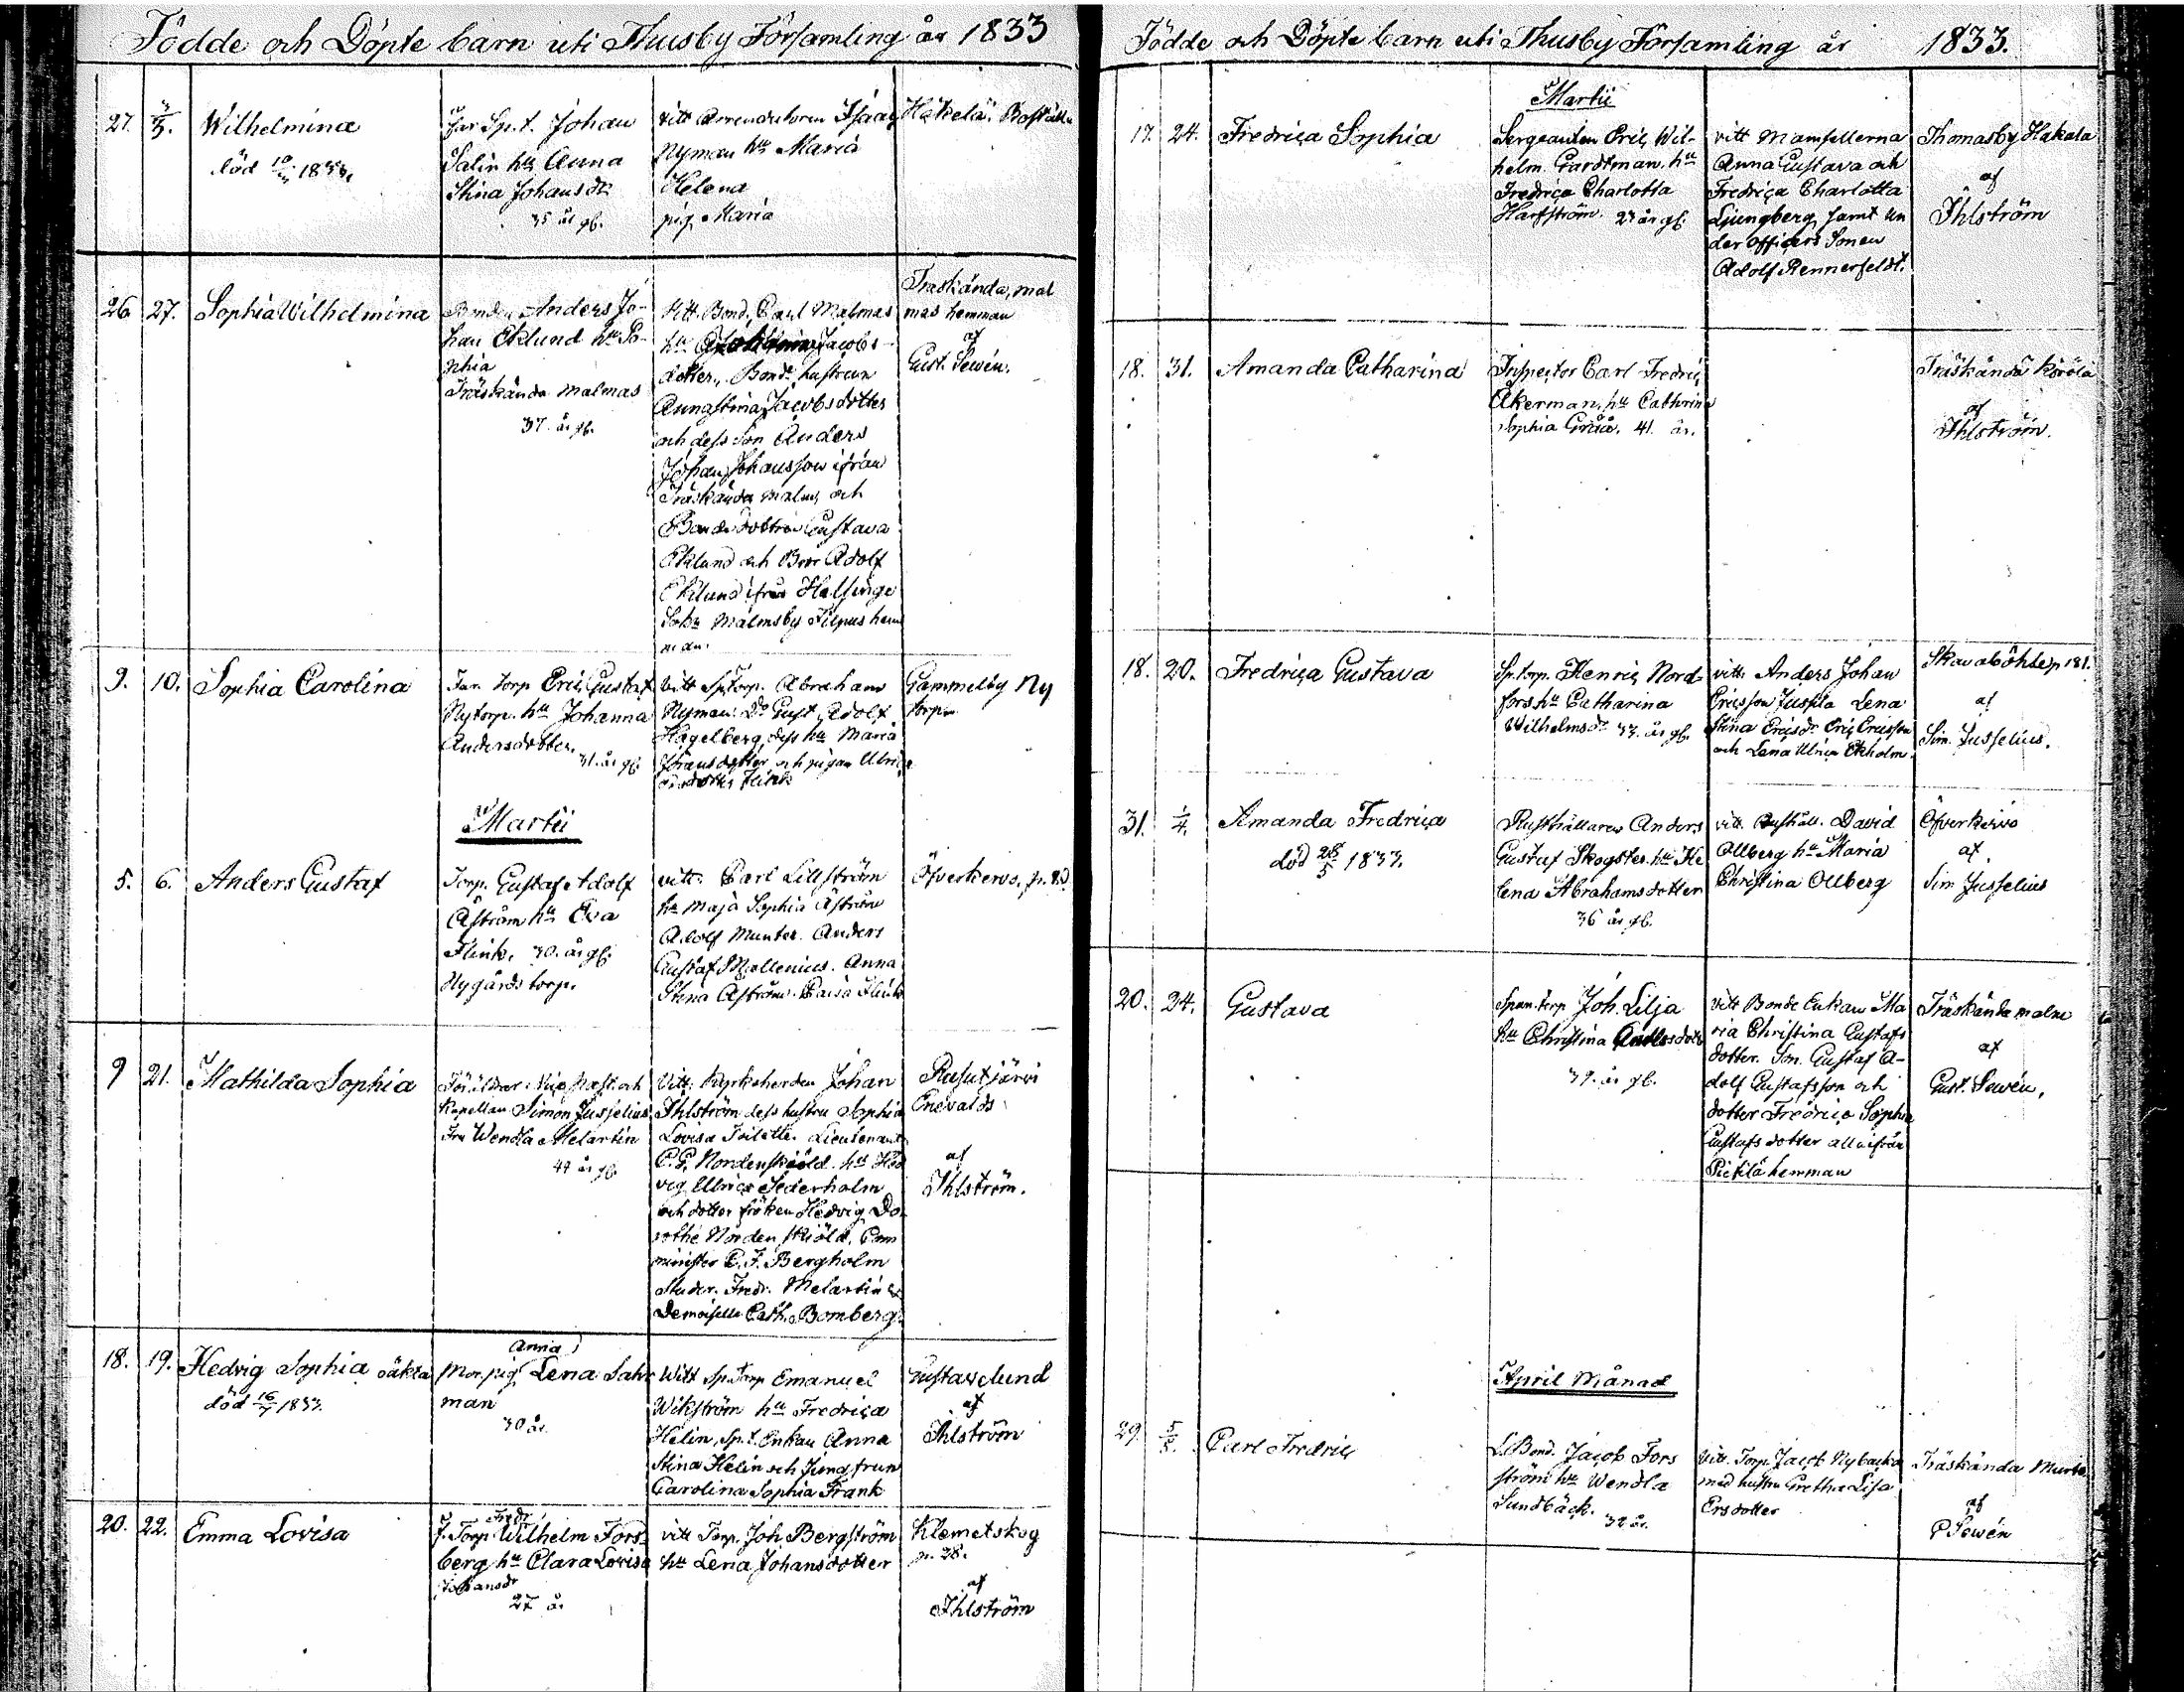 Födde och Döpte barn uti Thusby Församling år 1833
27. 3/3. Wilhelmina
död 1833.
Far Sp.t. Johan
Salin hu Anna
Stina Johansdr
35 år gl.
vitt Arrendatoren Isaac
Nyman hu Maria
Helena
pig. Maria
Häkelä Boställe
26. 27. Sophia Wilhelmina
Bonden Anders Jo-
han Eklund hu So-
phia
Träskända Malmas
37. år gl.
Vitt. Bond. Carl Malmas
hu Jacobs-
dotter, Bonde hustrun
Annastina Jacobsdotter
och dess Son Anders
Johan Johansson ifrån
Träskända malm och
Bonde dottren Gustava
Eklund och Bror Adolf
Eklund ifrån Helsinge
Sokn Malmsby Filpus hem
man.
Träskända, mal
mas hemman
af
Gust. Sewén.
9. 10. Sophia Carolina
Far. Torp Eric Gustaf
Nytorp. hu Johanna
Andersdotter.
31. år gl.
Vitt Sp.Torp. Abraham
Nyman: Do Gust. Adolf
Hagelberg, dess hu Maria
Johansdotter och pigan Ulrica
Flink
Gammelby Ny
torp
Martii
5. 6. Anders Gustaf
Torp. Gustaf Adolf
Åström hu Eva
Flink. 30. år gl.
Nygårds torp.
vitt: Carl Lillström
hu Maja Sophia Åström
Adolf Munter. Anders
Gustaf Mollenius. Anna
Stina Åström. Caisa Flink
Öfverkervo, p.
9 21. Mathilda Sophia
Föräldar: Vice Past. och
Kapellan Simon Jusselius
Fru Wendla Melartin
44 år gl.
Vitt: Kyrkoherden Johan
Ihlström dess hustru Sophia
Lovisa Toilette. Lieutenant
C. G. Nordenskiöld. hu Hed
vig Ulrica Sederholm
och dotter fröken Hedvig Do-
rothe Nordenskiöld, Com
minister C. F. Bergholm
Studer. Fredr. Melartin &
Demoiselle Cath. Bomberg.
Rusutjärvi
Enevalds
af
Ihlström.
18. 19. Hedvig Sophia oäkta
död 16/7 1833.
Anna
Mor. pig. Lena Sahl
man
30 år.
Witt Sp.Torp Emanuel
Wikström hu Fredrica
Helin, Sp.t. Enkan Anna
Stina Helin och Jungfrun
Carolina Sophia Frank
Gustavelund
af
Ihlström
20. 22. Emma Lovisa
Fredr
f. Torp. Wilhelm Fors-
berg hu Clara Lovisa
Johansdr
27 år
vitt Torp. Joh Bergström
hu Lena Johansdotter
Klemetskog
p. 28.
af
Ihlström
Födde och Döpte barn uti Thusby Församling år 1833.
Martii
17. 24. Fredrica Sophia
Sergeanten Eric Wil-
helm Gardtman. hu
Fredrica Charlotta
Harfström. 23 år gl.
vitt Mamsellerna
Anna Gustava och
Fredrica Charlotta
Ljungberg samt un
der officers Sonen
Adolf Rennerfeldt.
Thomasby Hakala
af
Ihlström
18. 31. Amanda Catharina
Inspector Carl Fredric
Åkerman, hu Cathrina
Sophia Gråå. 41. år.
Träskända Köröla
af
Ihlström.
18. 20. Fredrica Gustava
Sp.torp. Henric Nord-
fors hu Catharina
Wilhelmsdr 33. år gl.
vitt. Anders Johan
Ericsson Jussila Lena
Stina Ericsdr Eric Ericsson
och Lena Ulrica Ekholm.
Skavaböhle p 181.
af
Sim. Jusselius.
31. 1/4. Amanda Fredrica
död 28/5 1833.
Rusthållaren Anders
Gustaf Skogster. hu He
lena Abrahamsdotter
36 år gl.
vitt. Rusthåll. David
Ollberg hu Maria
Christina Ollberg
Öfverkervo
af
Sim Jusselius
20. 24. Gustava
Span.torp Joh. Lilja
hu Christina Andersdotter
39. år gl.
vitt Bonde Enkan Ma
ria Christina Gustafs
dotter. Son. Gustaf A-
dolf Gustafsson och
dotter Fredrica Sophia
Gustafsdotter alla ifrån
Pickilä hemman
Träskända malm
af
Gust. Sewén.
April Månad
29. 5/5. Carl Fredric
L.Bond. Jacob Fors
ström hu Wendla
Sundbäck. 32 år.
Vitt. Torp. Jacob Nybacka
med hustru Gretha Lisa
Ersdotter
Träskända Murto
af
G Sewén